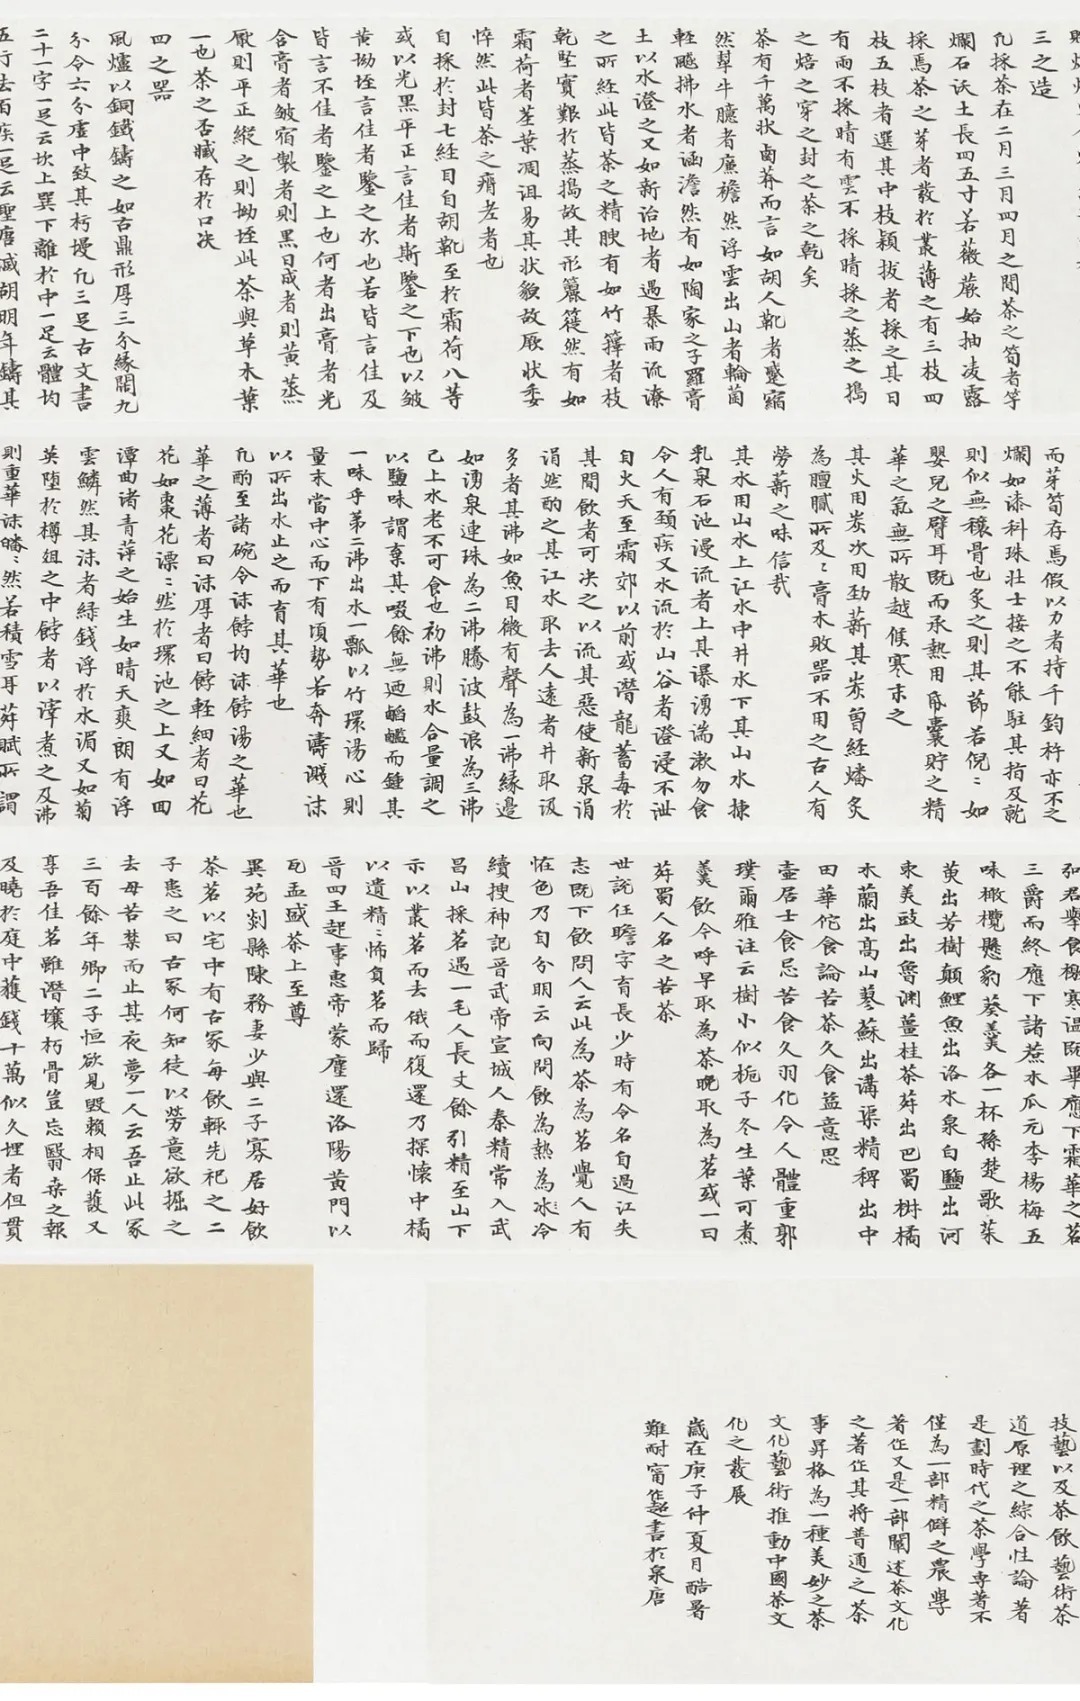 三之造
凡採茶在二月三月四月之間茶之筍者等
爛石沃土長四五寸若薇蕨始抽凌露
採焉茶之芽者發於叢薄之有三枝四
枝五枝者選其中枝穎拔者採之其日
有雨不採晴有雲不採晴採之蒸之搗
之焙之穿之封之茶之乾矣
茶有千萬狀鹵莽而言如胡人靴者蹙縮
然犎牛臆者廉襜然浮雲出山者輪菌
輕飈拂水者涵澹然有如陶家之子羅膏
土以水澄之又如新治地者遇暴雨流潦
之所經此皆茶之精腴有如竹籜者枝
乾堅實艱於蒸搗故其形籭簁然有如
霜荷者莖葉凋沮易其狀貌故厥狀委
悴然此皆茶之瘠老者也
自採於封七經目自胡靴至於霜荷八等
或以光黑平正言佳者斯鑒之下也以皺
黄坳垤言佳者鑒之次也若皆言佳及
皆言不佳者鑒之上也何者出膏者光
含膏者皺宿製者則黑日成者則黃蒸
厭則平正縱之則坳垤此茶與草木葉
一也茶之否臧存於口决
四之器
風爐以銅鐵鑄之如古鼎形厚三分緣闊九
分令六分虛中致其杇墁凡三足古文書
二十一字一足云坎上巽下離於中一足云體均
五行去百疾一足云聖唐滅胡明年鑄其
而芽筍存焉假以力者持千鈞杵亦不之
爛如漆科珠壮士接之不能駐其指及乾
則似無穰骨也炙之則其節若倪〻如
嬰兒之臂耳既而承熱用紙囊貯之精
華之氣無所散越候寒末之
其火用炭次用勁薪其炭曾經燔炙
為膻膩所及〻膏木敗器不用之古人有
勞薪之味信哉
其水用山水上江水中井水下其山水揀
乳泉石池漫流者上其瀑湧湍漱勿食
令人有頸疾又水流於山谷者澄浸不泄
自火天至霜郊以前或潛龍蓄毒於
其間飲者可决之以流其惡使新泉涓
涓然酌之其江水取去人遠者井取汲
多者其沸如魚目微有聲為一沸緣邊
如湧泉連珠為二沸騰波鼓浪為三沸
已上水老不可食也初沸則水合量調之
以鹽味謂棄其啜餘無迺䶣䶢而鍾其
一味乎第二沸出水一瓢以竹環湯心則
量末當中心而下有頃勢若奔濤濺沫
以所出水止之而育其華也
凡酌至諸碗令沫餑均沫餑湯之華也
華之薄者曰沫厚者曰餑輕細者曰花
花如棗花漂〻然於環池之上又如回
潭曲渚青萍之始生如晴天爽朗有浮
雲鱗然其沫者綠錢浮於水湄又如菊
英墮於樽俎之中餑者以滓煮之及沸
則重華沫皤〻然若積雪耳荈賦所謂
弘君舉食檄寒溫既畢應下霜華之茗
三爵而終應下諸蔗木瓜元李楊梅五
味橄欖懸豹葵羹各一杯孫楚歌茱
萸出芳樹顛鯉魚出洛水泉白鹽出河
東美豉出魯渊薑桂茶荈出巴蜀椒橘
木蘭出高山蓼蘇出溝渠精稗出中
田華佗食論苦茶久食益意思
壺居士食忌苦食久羽化令人體重郭
璞爾雅注云樹小似梔子冬生葉可煮
羹飲今呼早取為茶晚取為茗或一曰
荈蜀人名之苦茶
世說任瞻字育長少時有令名自過江失
志既下飲問人云此為茶為茗覺人有
怪色乃自分明云向問飲為熱為冰冷
續搜神記晉武帝宣城人秦精常入武
昌山採茗遇一毛人長丈餘引精至山下
示以叢茗而去俄而復還乃探懷中橘
以遺精〻怖負茗而歸
晉四王起事惠帝蒙塵還洛陽黃門以
瓦盂盛茶上至尊
異苑剡縣陳務妻少與二子寡居好飲
茶茗以宅中有古冢每飲輒先祀之二
子患之曰古冢何知徒以勞意欲掘之
去母苦禁而止其夜夢一人云吾止此冢
三百餘年卿二子恒欲見毀賴相保護又
享吾佳茗雖潛壤朽骨豈忘翳桑之報
及曉於庭中獲錢十萬似久埋者但貫
技藝以及茶飲藝術茶
道原理之綜合性論著
是劃時代之茶學專著不
僅為一部精僻之農學
著作又是一部闡述茶文化
之著作其將普通之茶
事昇格為一種美妙之茶
文化藝術推動中國茶文
化之發展
歲在庚子仲夏月酷暑
難耐甯作超書於泉唐